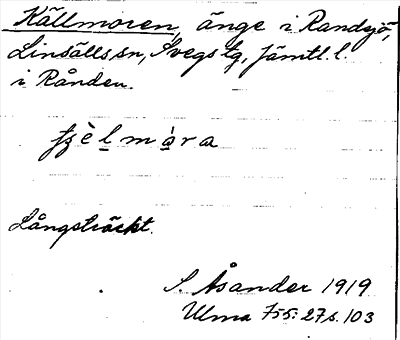 Källmoren, änge i Randsjö,
Linsälls sn, Svegs tg, Jämtl. l.
i Rånden.
Långsträckt.
S. Åsander 1919
Ulma 755: 27 s. 103